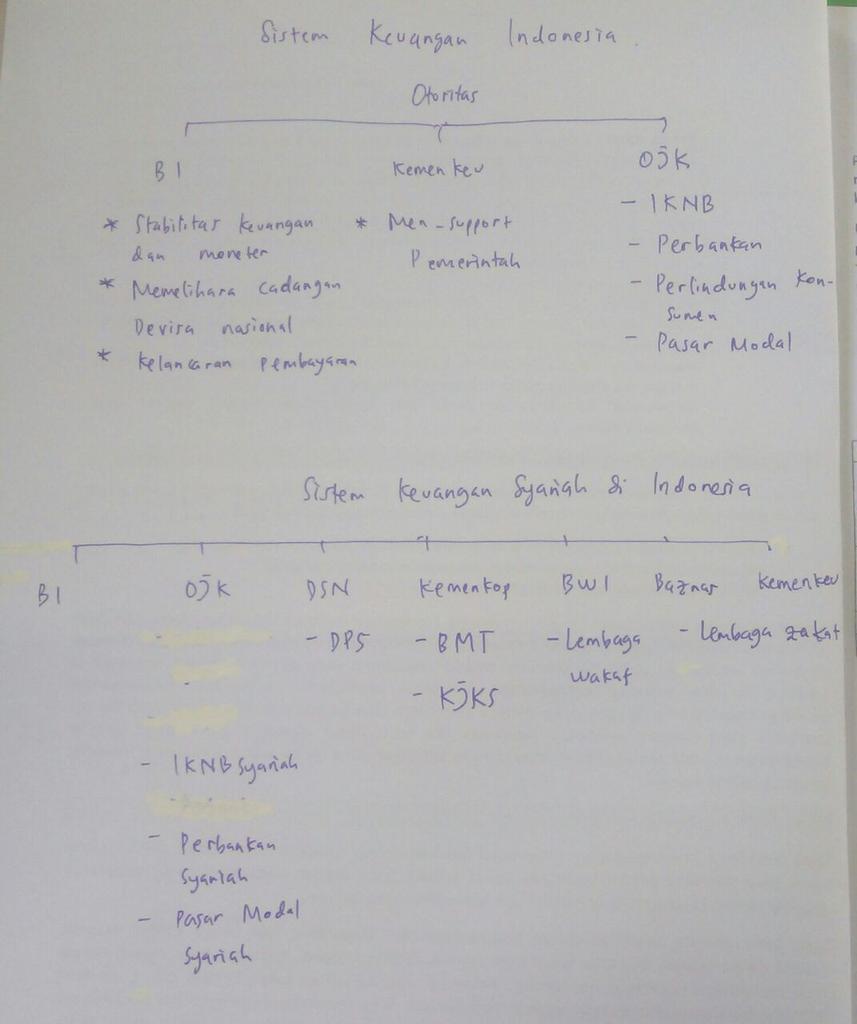 Sistem Keuangan Indonesia.
Otoritas
BI
Kemenkeu
OJK
* Stabilitas keuangan
dan moneter
* Memelihara cadangan
Devisa nasional
* Kelancaran pembayaran
* Men-support
Pemerintah
- IKNB
- Perbankan
- Perlindungan Kon-
sumen
- Pasar Modal
Sistem Keuangan Syariah di Indonesia
BI
OJK
DSN
Kemenkop
BWI
Baznas
Kemenkeu
- IKNB Syariah
- Perbankan
Syariah
- Pasar Modal
Syariah
- DPS
- BMT
- KJKS
- Lembaga
wakaf
- Lembaga zakat